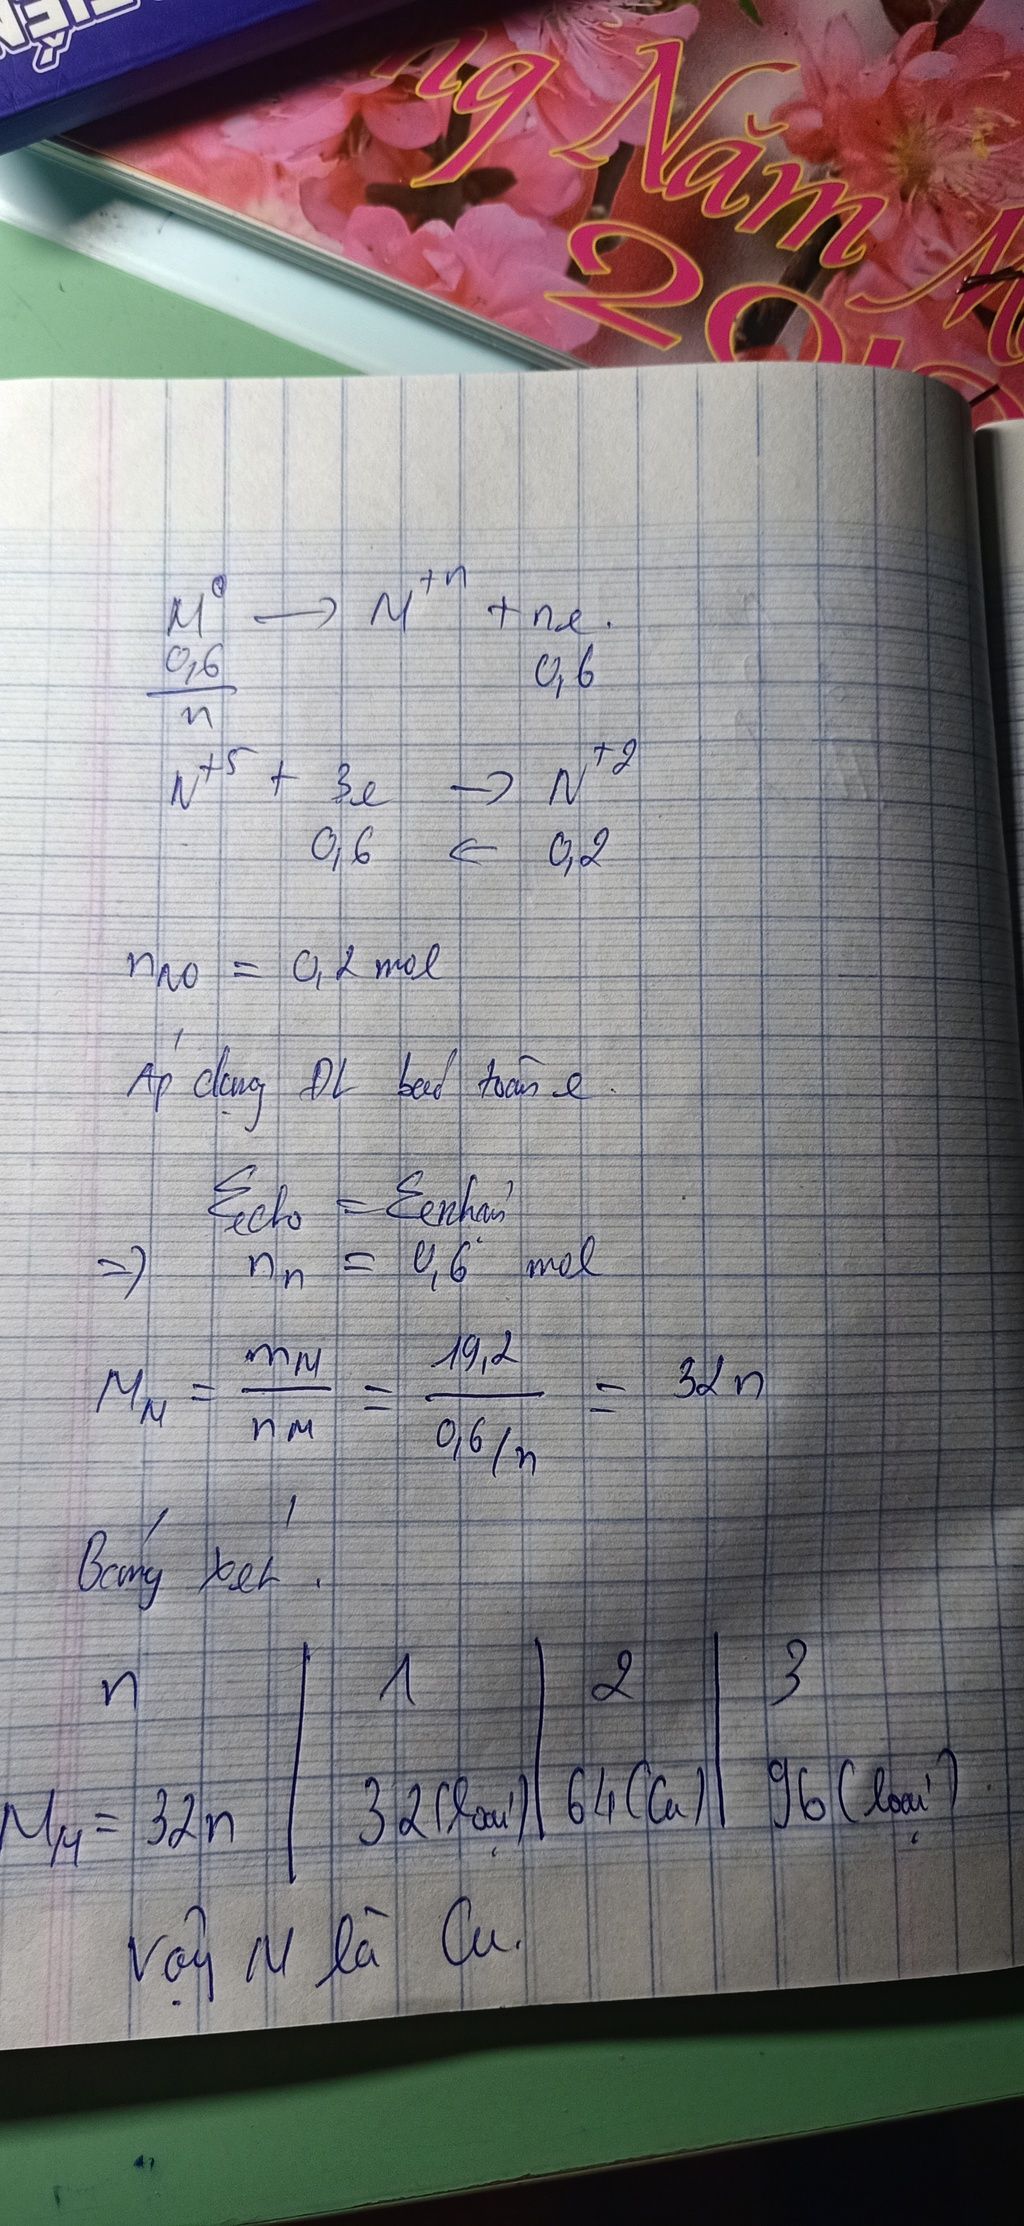 ng Năm M
20
M⁰ → M⁺ⁿ + ne.
0,6/n 0,6
N⁺⁵ + 3e → N⁺²
0,6 ← 0,2
nNO = 0,2 mol
Áp dụng ĐL bảo toàn e.
Σecho = Σenhận
=> nn = 0,6 mol
MM = mM/nM = 19,2/0,6/n = 32n
Bảng xét.
n | 1 | 2 | 3
MM = 32n | 32(loại) | 64(Cu) | 96(loại).
Vậy M là Cu.